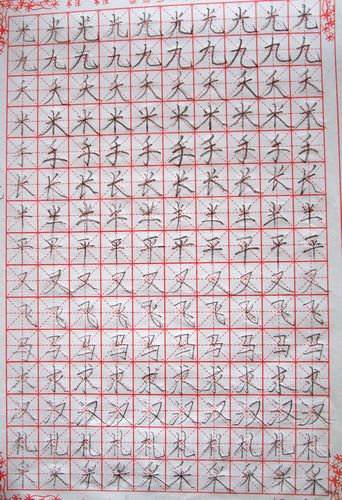 光光光光光光光光光光
九九九九九九九九九九
夭夭夭夭夭夭夭夭夭夭
米米米米米米米米米米
手手手手手手手手手手
长长长长长长长长长长
半半半半半半半半半半
平平平平平平平平平平
叉叉叉叉叉叉叉叉叉叉
飞飞飞飞飞飞飞飞飞飞
马马马马马马马马马马
求求求求求求求求求求
汉汉汉汉汉汉汉汉汉汉
札札札札札札札札札札
禾禾禾禾禾禾禾禾禾禾